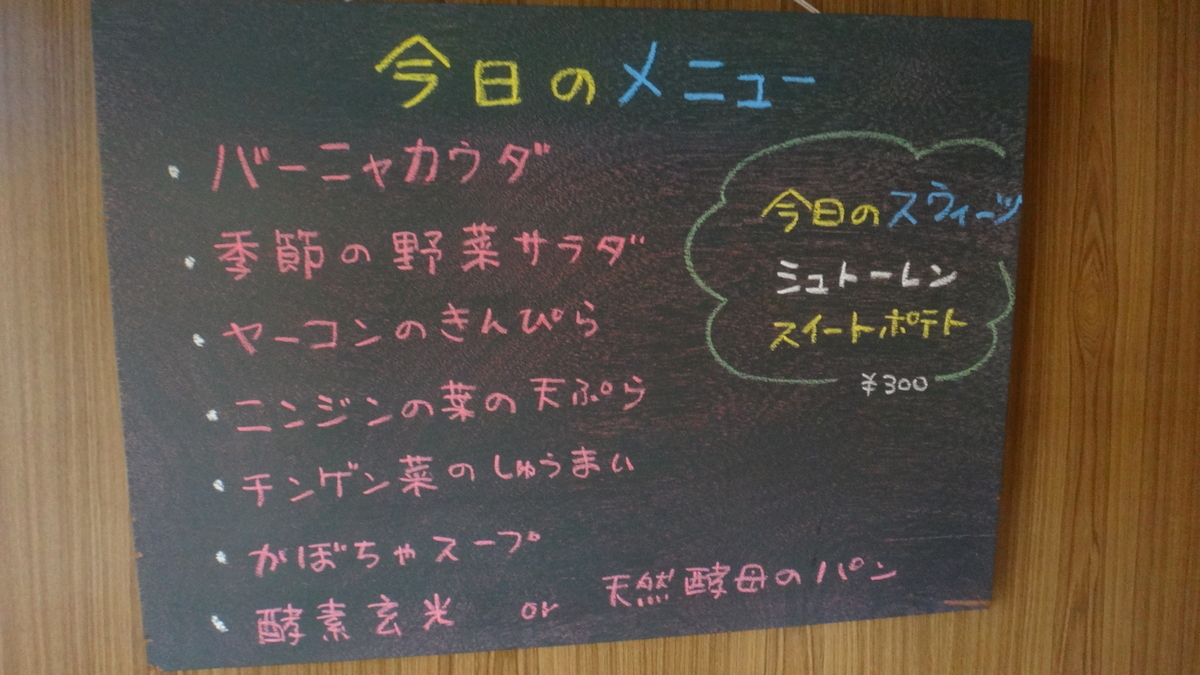 今日のメニュー
・バーニャカウダ
・季節の野菜サラダ
・ヤーコンのきんぴら
・ニンジンの葉の天ぷら
・チンゲン菜のしゅうまい
・がぼちゃスープ
・酵素玄米 or 天然酵母のパン
今日のスウィーツ
ミュトーレン
スイートポテト
¥300